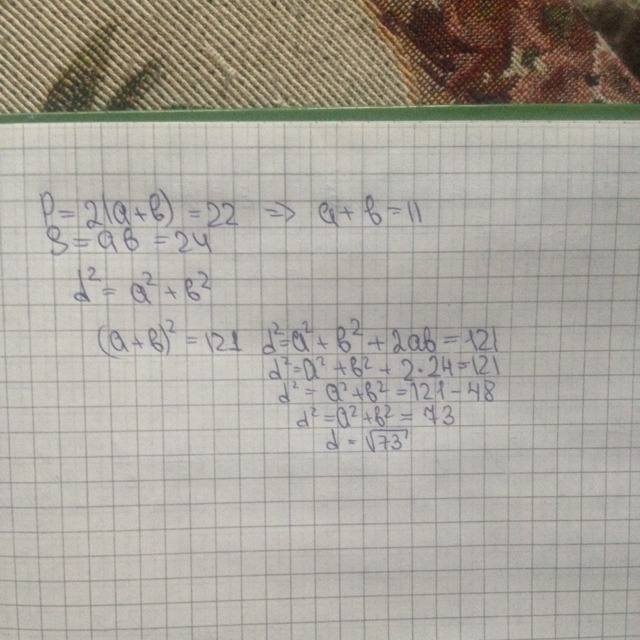 P = 2(a+b) = 22 => a+b = 11
S = ab = 24
d² = a² + b²
(a+b)² = 121 d² = a² + b² + 2ab = 121
d² = a² + b² + 2·24 = 121
d² = a² + b² = 121 - 48
d² = a² + b² = 73
d = √73